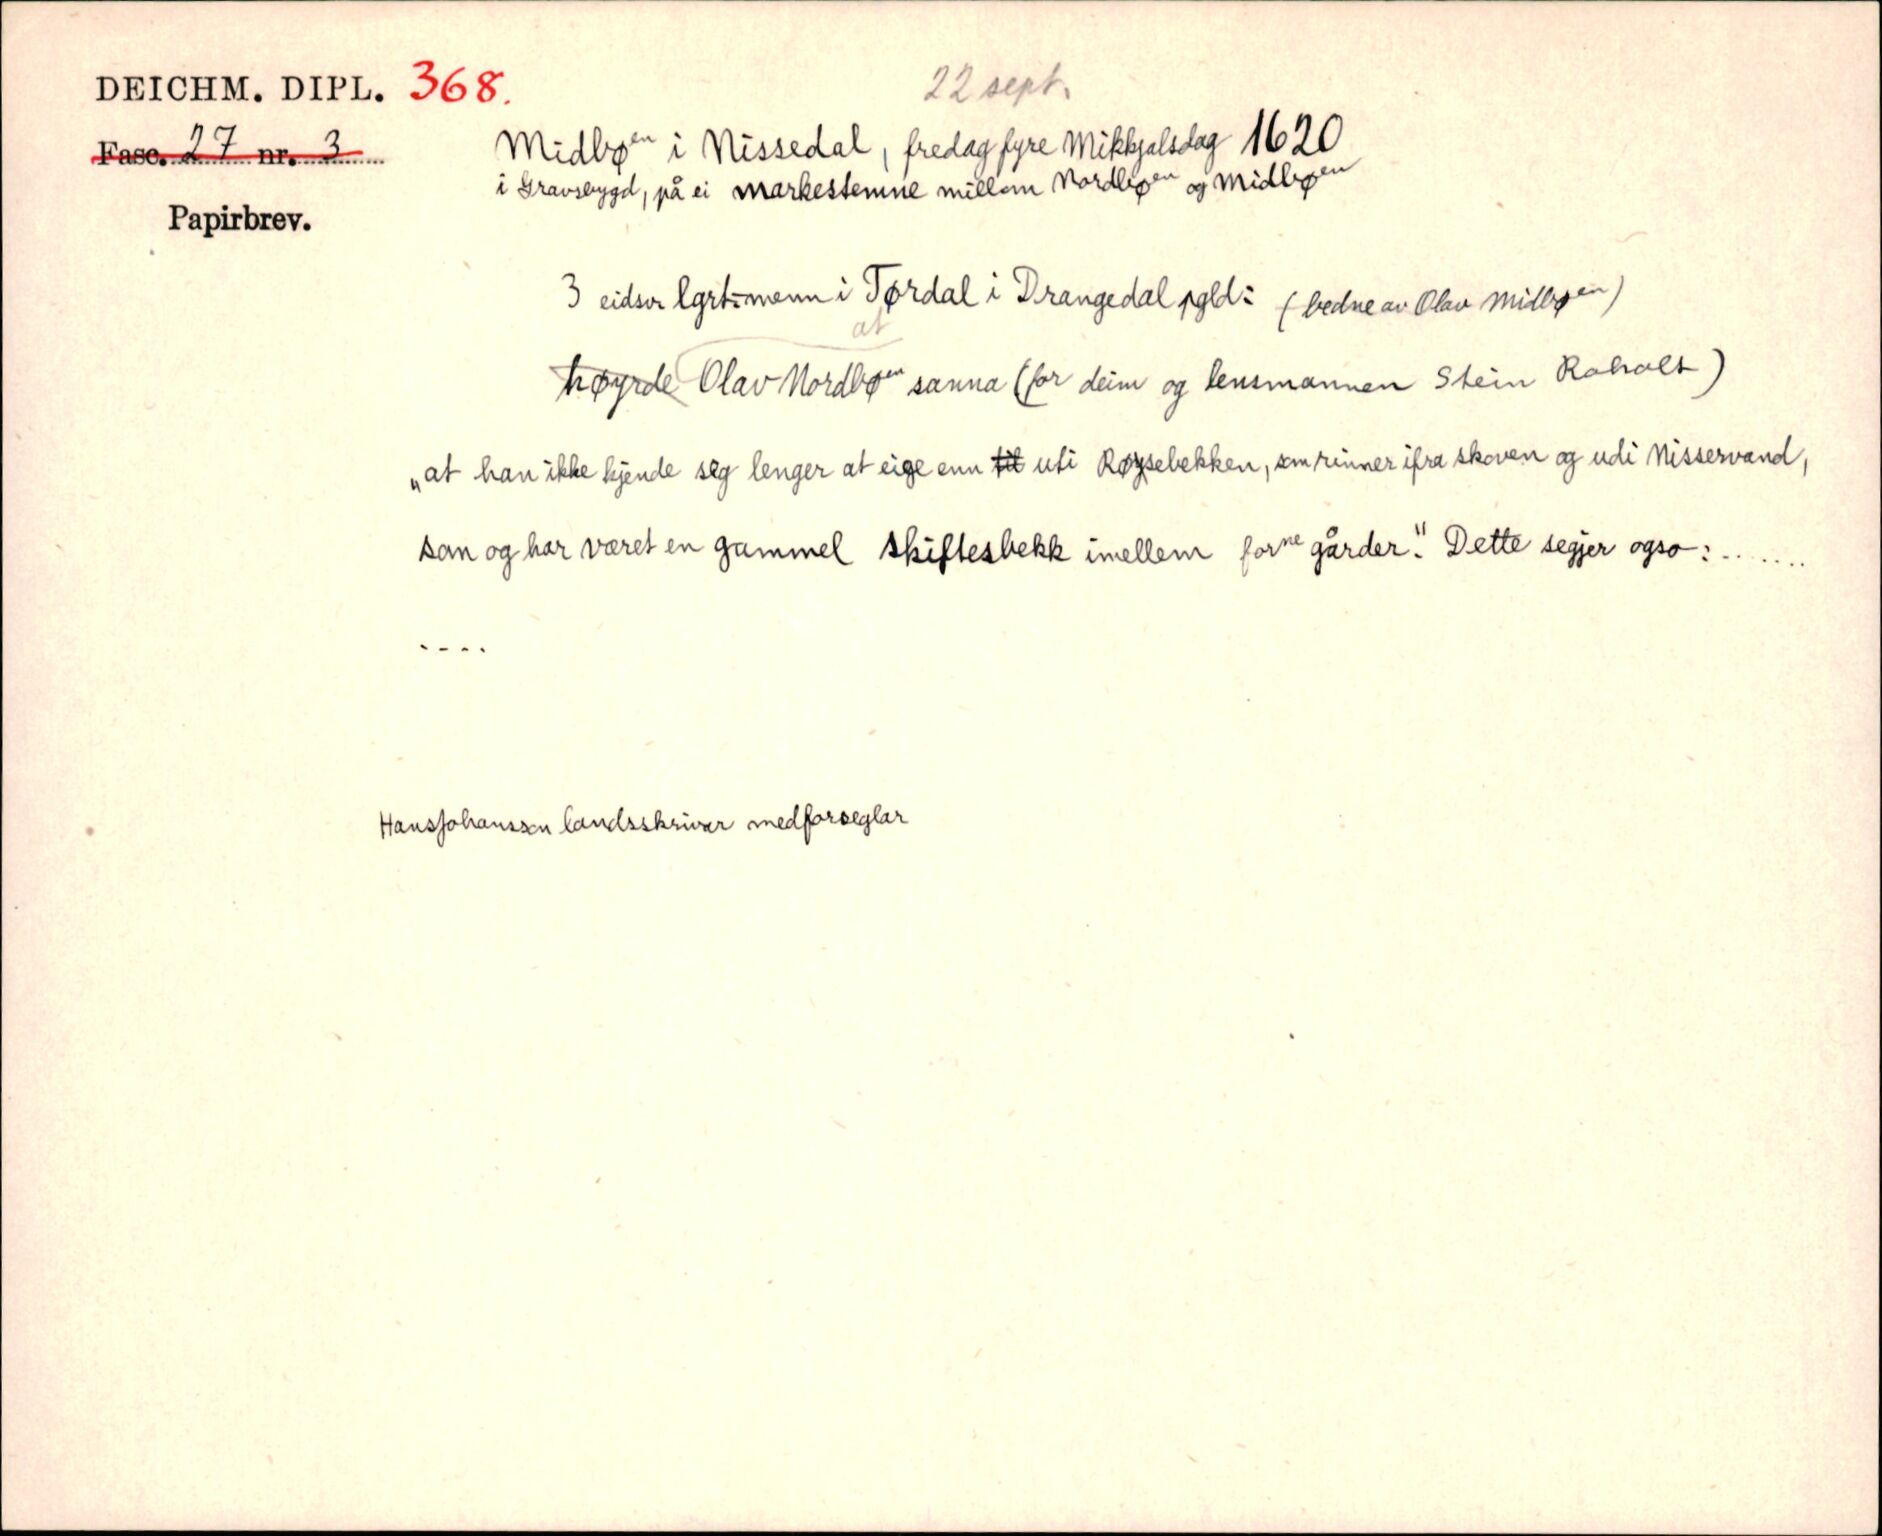 DEICHM. DIPL. 368.
22 sept.
Fasc. 27 nr. 3
Midbøen i Nissedal, fredag fyre Mikkjalsdag 1620
i Gravsbygd, på ei markestemne millom Nordbøen og Midbøen
Papirbrev.
3 eidsvr lgrt:menn i Tørdal i Drangedal pgld: (bedne av Olav Midbøen)
at
høyrde Olav Nordbøen sanna (for deim og lensmannen Stein Roholt)
„at han ikke kjende seg lenger at eige enn til uti Røysebekken, som rinner ifra skoven og udi Nisservand,
som og har været en gammel skiftesbekk imellem forne gårder." Dette segjer ogso: .......
....
Hans Johansson landsskrivar medforseglar